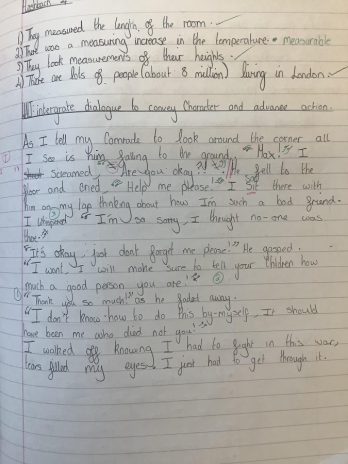 Flashback 4
1) They measured the length of the room.
2) There was a measuring increase in the temperature. • measurable
3) They took measurements of their heights.
4) There are lots of people (about 8 million) living in London.
WT: intergrate dialogue to convey character and advance action.
As I tell my Comrade to look around the corner all
I see is him falling to the ground. "Max!" I
Screamed, "Are you okay?!" He fell to the
floor and cried, "Help me please." I sit there with
him on my lap thinking about how I'm such a bad friend.
I whispered "I'm so sorry, I thought no-one was
there."
"It's okay, just dont forget me please." He gasped.
"I wont, I will make sure to tell your children how
much a good person you are."
"Thank you so much!" as he faded away.
"I don't know how to do this by-myself. It should
have been me who died not you!"
I walked off knowing I had to fight in this war,
tears filled my eyes. I just had to get through it.